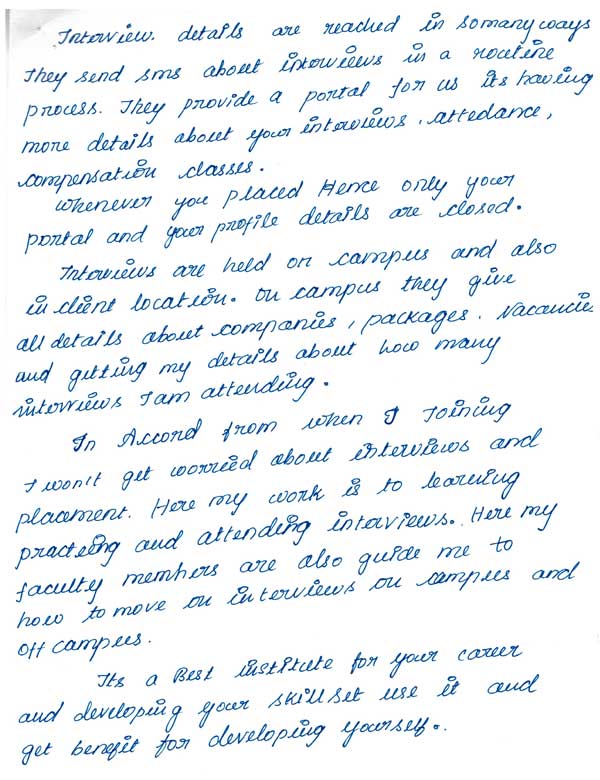 Interview. details are reached in somany ways
They send sms about interviews in a routine
process. They provide a portal for us its having
more details about your interviews, attedance,
compensation classes.
Whenever you placed Hence only your
portal and your profile details are closed.
Interviews are held on campus and also
in client location. On campus they give
all details about companies, packages. Vacancies
and getting my details about how many
interviews I am attending.
In Accord from when I Joining
I won't get worried about interviews and
placement. Here my work is to learning
practeing and attending interviews. Here my
faculty members are also guide me to
how to move on interviews on campus and
off campus.
Its a Best institute for your career
and developing your skillset use it and
get benefit for developing yourself..